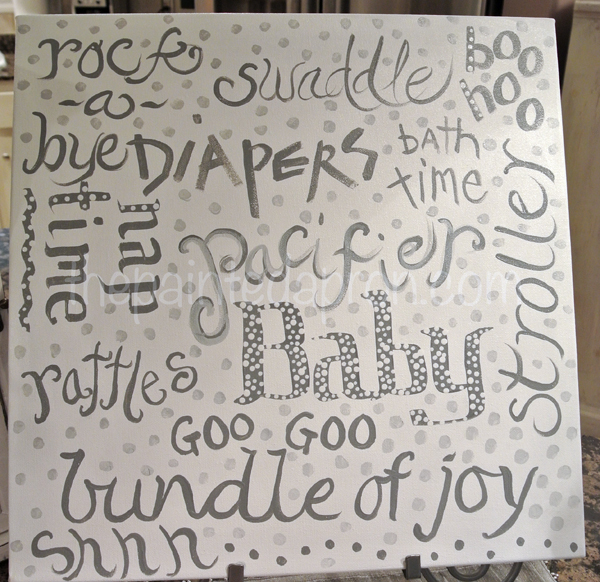 rock
-a-
bye
swaddle
boo
hoo
DIAPERS
bath
time
stroller
nap
time
pacifier
thepaintedapron.com
Baby
rattles
GOO GOO
bundle of joy
shhh